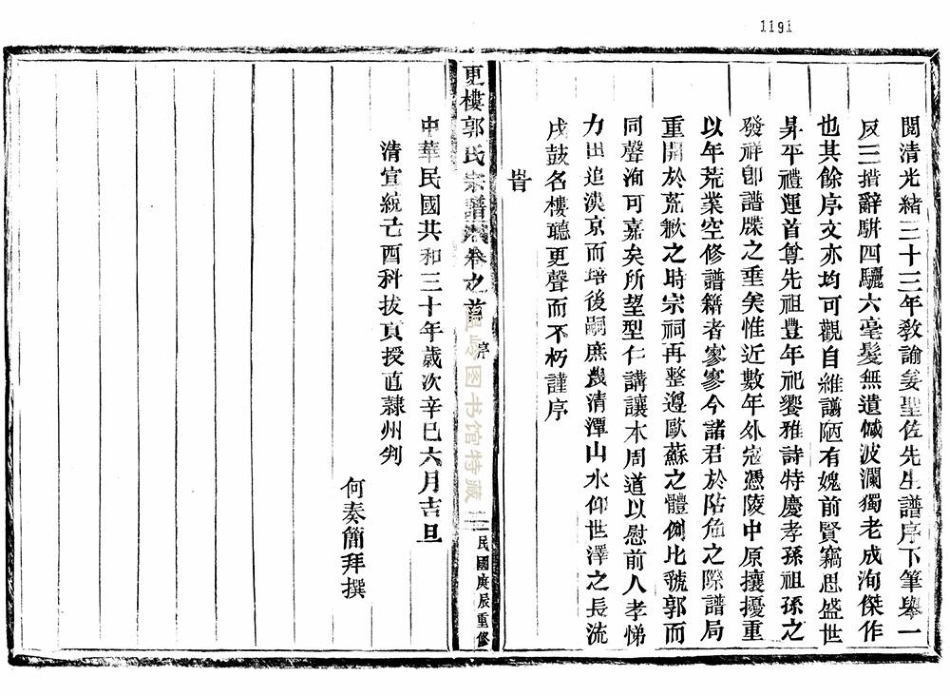 1191
閱清光緒三十三年敎諭姜聖佐先生譜序下筆舉一
反三措辭駢四驪六毫髮無遺憾波瀾獨老成洵傑作
也其餘序文亦均可觀自維譾陋有媿前賢竊思盛世
昇平禮運首尊先祖豊年祀饗雅詩特慶孝孫祖孫之
發祥卽譜牒之垂矣惟近數年外寇憑陵中原攘擾重
以年荒業空修譜籍者寥寥今諸君於阽危之際譜局
重開於荒歉之時宗祠再整遵歐蘇之體例比虢郭而
同聲洵可嘉矣所望型仁講讓木周道以慰前人孝悌
力田追漢京而培後嗣庶農清潭山水仰世澤之長流
戍鼓名樓聽更聲而不朽謹序
旹
更樓郭氏宗譜 卷之首 序 民國庚辰重修
温岭图书馆特藏
中華民國共和三十年歲次辛巳六月吉旦
清宣統己酉科拔貢授直隸州判
何奏簡拜撰